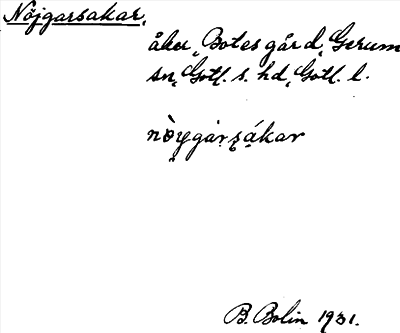 Nöjgarsakar,
åker, Botes gård, Gerum
sn, Gotl. s. hd, Gotl. l.
nòygàrsákar
B. Bolin 1931.